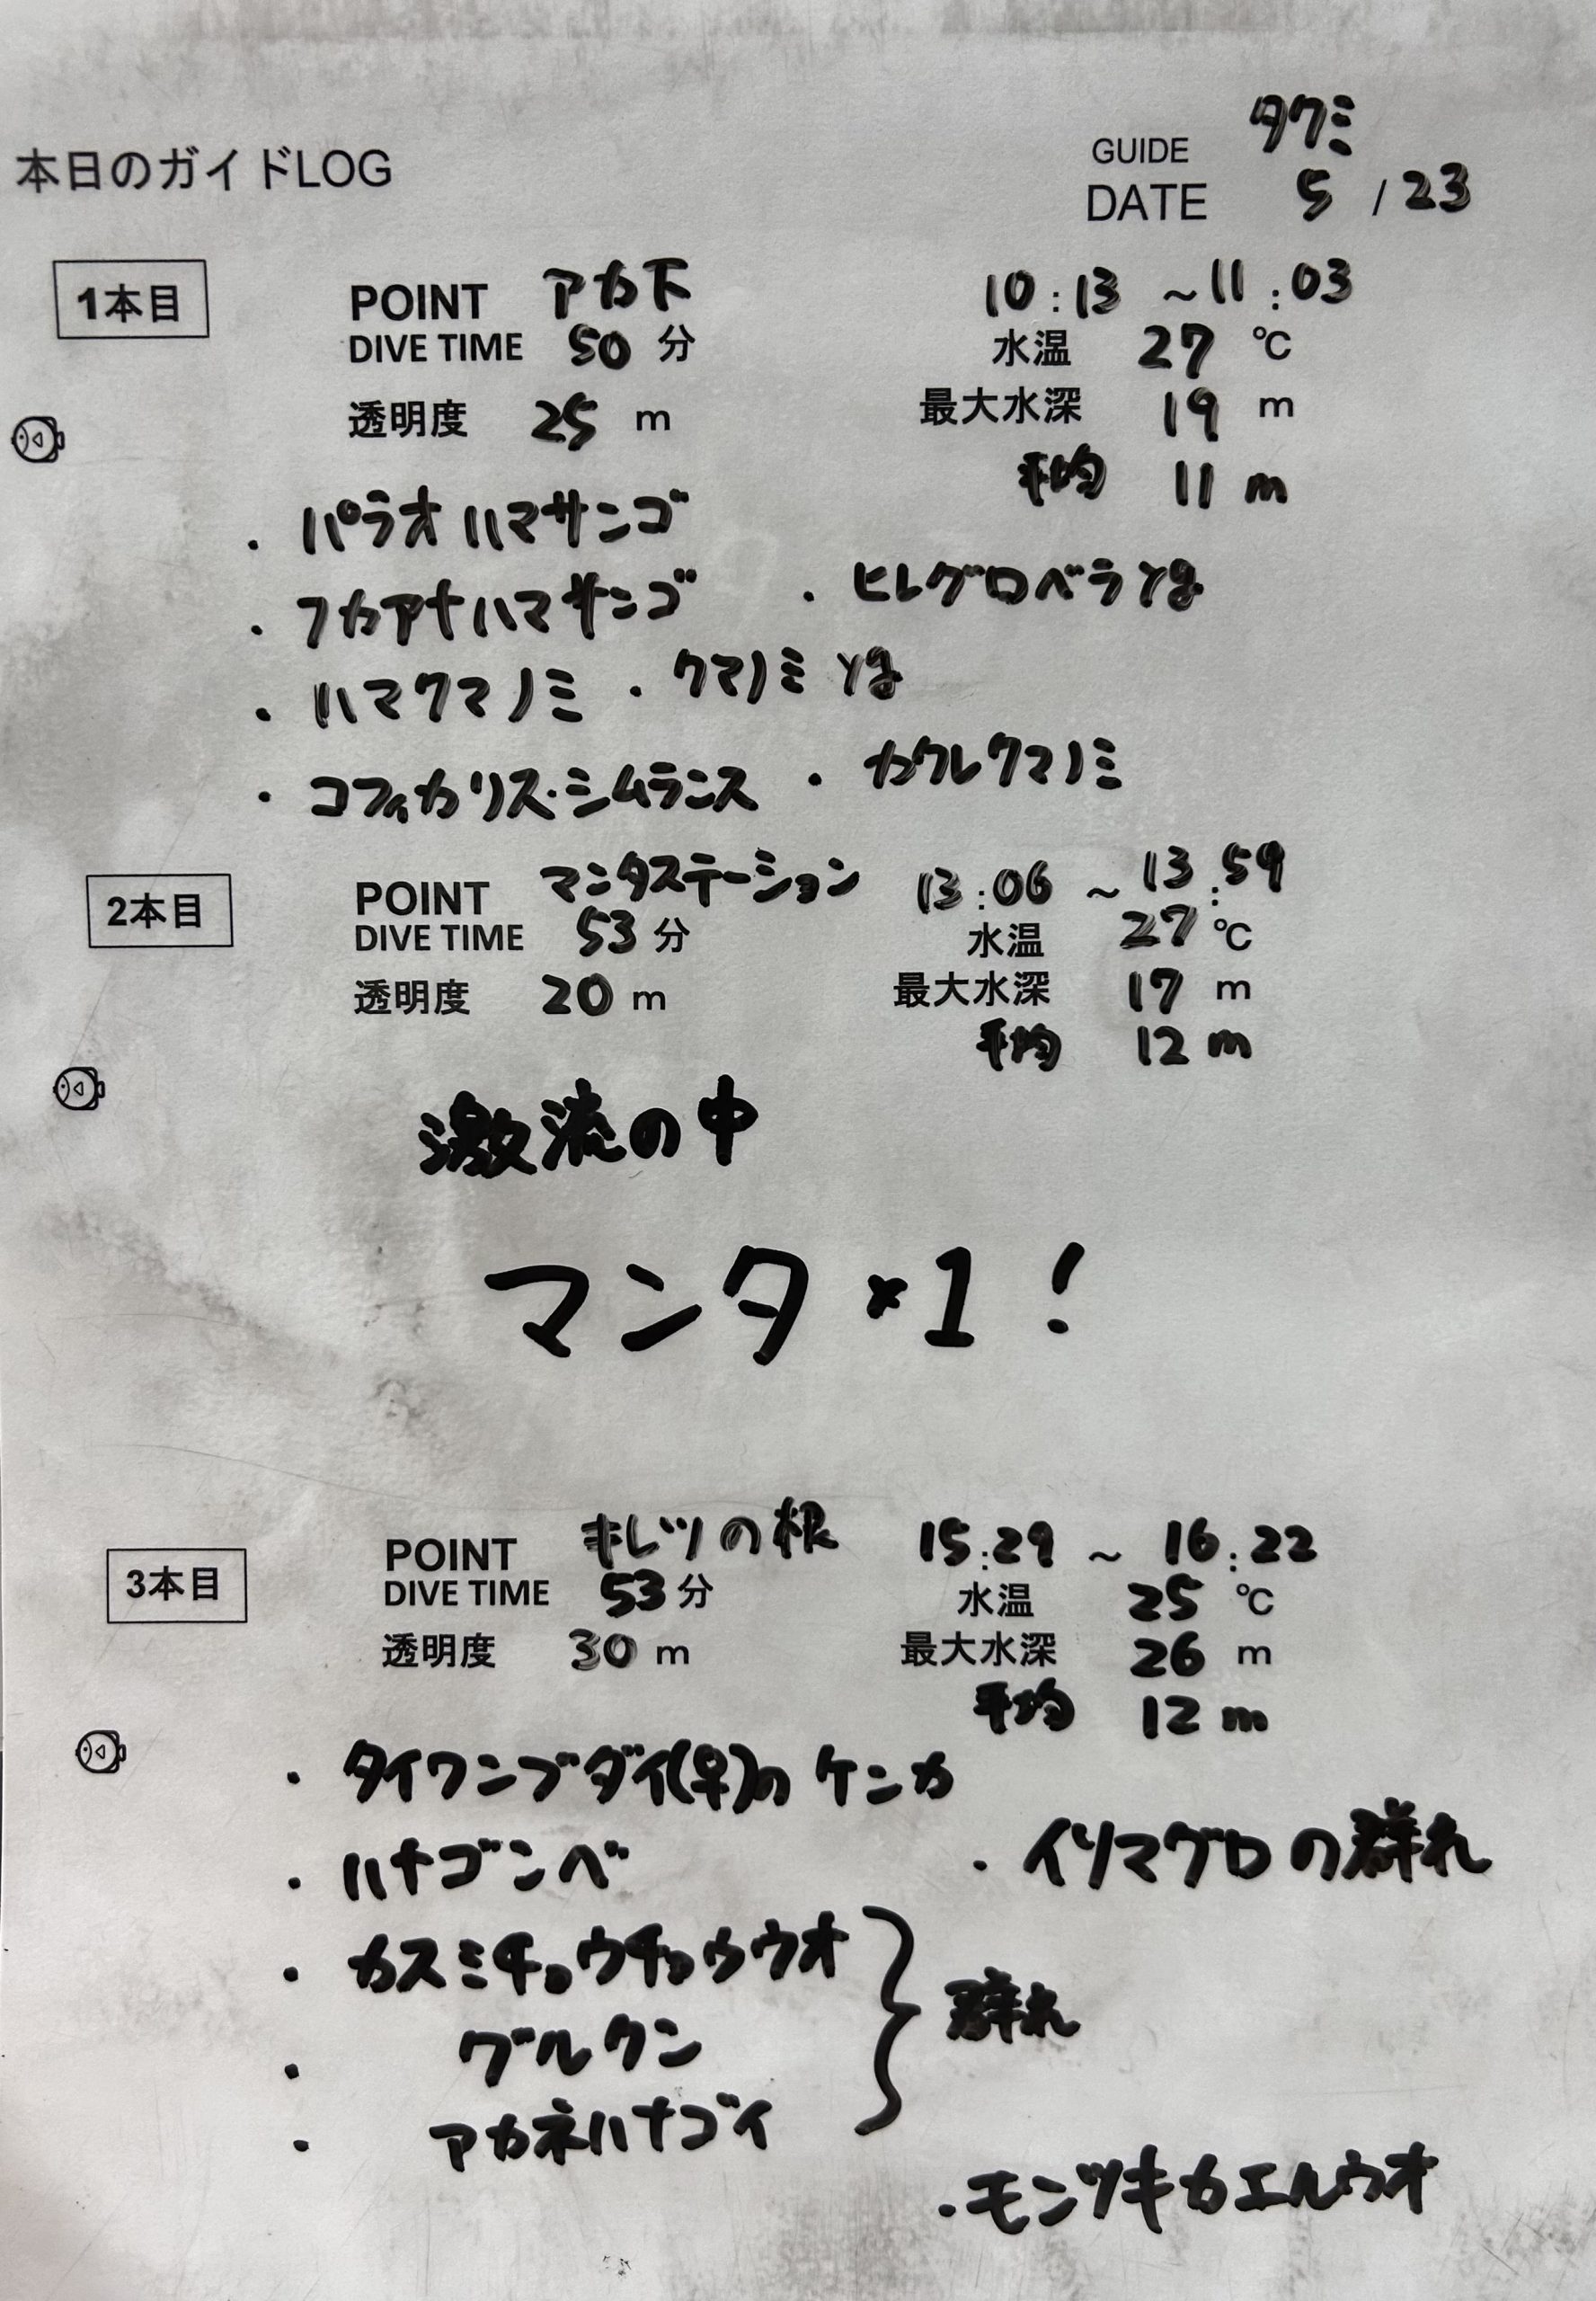 GUIDE タクミ
本日のガイドLOG
DATE 5 / 23
1本目
POINT アカ下 10:13 ~ 11:03
DIVE TIME 50 分 水温 27 ℃
透明度 25 m 最大水深 19 m
平均 11 m
・パラオハマサンゴ
・フカアナハマサンゴ ・ヒレグロベラyg
・ハマクマノミ ・クマノミ yg
・コフィカリス・シムランス ・カクレクマノミ
2本目
POINT マンタステーション 13:06 ~ 13:59
DIVE TIME 53 分 水温 27 ℃
透明度 20 m 最大水深 17 m
平均 12 m
激流の中
マンタ×1!
3本目
POINT キレツの根 15:29 ~ 16:22
DIVE TIME 53 分 水温 25 ℃
透明度 30 m 最大水深 26 m
平均 12 m
・タイワンブダイ(♀)のケンカ
・ハナゴンベ ・イソマグロの群れ
・カスミチョウチョウウオ
・グルクン 群れ
・アカネハナゴイ
・モンツキカエルウオ